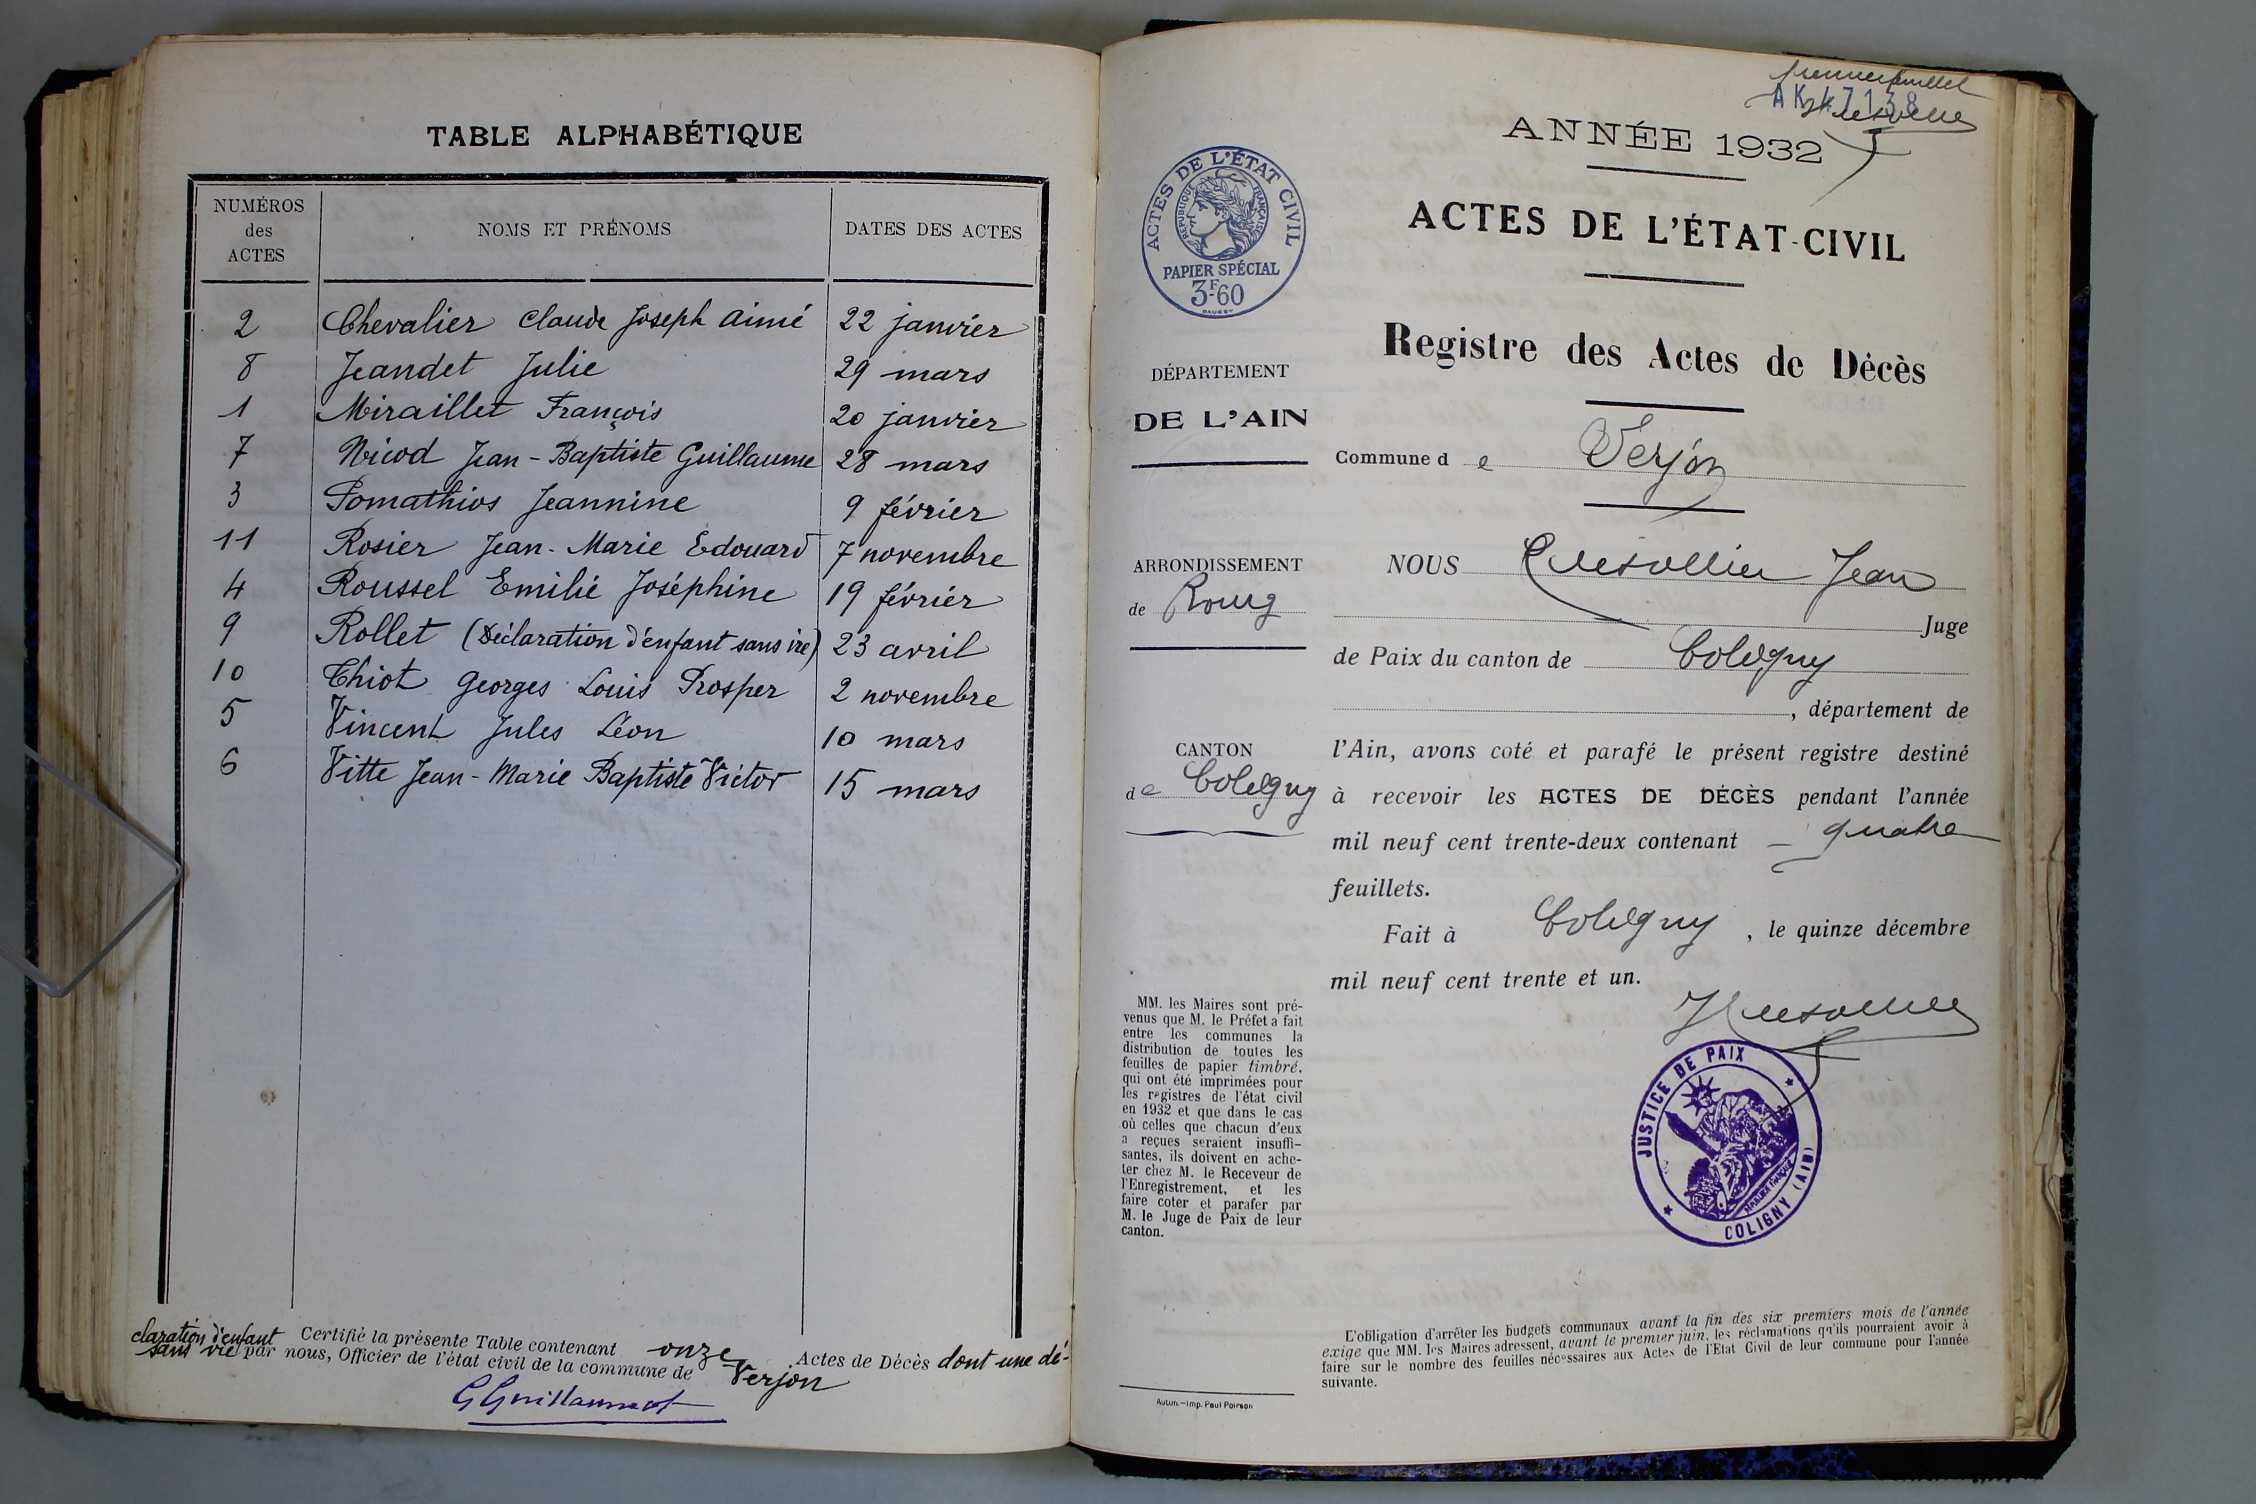 TABLE ALPHABÉTIQUE
NUMÉROS des ACTES
NOMS ET PRÉNOMS
DATES DES ACTES
2 Chevalier Claude Joseph Aimé 22 janvier
8 Jeandet Julie 29 mars
1 Miraillet François 20 janvier
7 Nicod Jean-Baptiste Guillaume 28 mars
3 Pomathios Jeannine 9 février
11 Rosier Jean-Marie Edouard 7 novembre
4 Roussel Emilie Joséphine 19 février
9 Rollet (Déclaration d'enfant sans vie) 23 avril
10 Thiot Georges Louis Prosper 2 novembre
5 Vincent Jules Léon 10 mars
6 Vitte Jean-Marie Baptiste Victor 15 mars
Certifié la présente Table contenant onze Actes de Décès dont une dé-
claration d'enfant
sans vie par nous, Officier de l'état civil de la commune de Verjon
G Guillaumot
premier feuillet
AK 47138
ANNÉE 1932
ACTES DE L'ÉTAT CIVIL
RÉPUBLIQUE FRANÇAISE
PAPIER SPÉCIAL
3F60
ACTES DE L'ÉTAT-CIVIL
Registre des Actes de Décès
DÉPARTEMENT
DE L'AIN
Commune de Verjon
ARRONDISSEMENT
de Bourg
CANTON
de Coligny
NOUS Jean
Juge
de Paix du canton de Coligny
, département de
l'Ain, avons coté et parafé le présent registre destiné
à recevoir les ACTES DE DÉCÈS pendant l'année
mil neuf cent trente-deux contenant quatre
feuillets.
Fait à Coligny, le quinze décembre
mil neuf cent trente et un.
JUSTICE DE PAIX
COLIGNY (AIN)
MM. les Maires sont pré-
venus que M. le Préfet a fait
entre les communes la
distribution de toutes les
feuilles de papier timbré,
qui ont été imprimées pour
les registres de l'état civil
en 1932 et que dans le cas
où celles que chacun d'eux
a reçues seraient insuffi-
santes, ils doivent en ache-
ter chez M. le Receveur de
l'Enregistrement, et les
faire coter et parafer par
M. le Juge de Paix de leur
canton.
L'obligation d'arrêter les budgets communaux avant la fin des six premiers mois de l'année
exige que MM. les Maires adressent, avant le premier juin, les réclamations qu'ils pourraient avoir à
faire sur le nombre des feuilles nécessaires aux Actes de l'Etat Civil de leur commune pour l'année
suivante.
Autun.—Imp. Paul Poirson